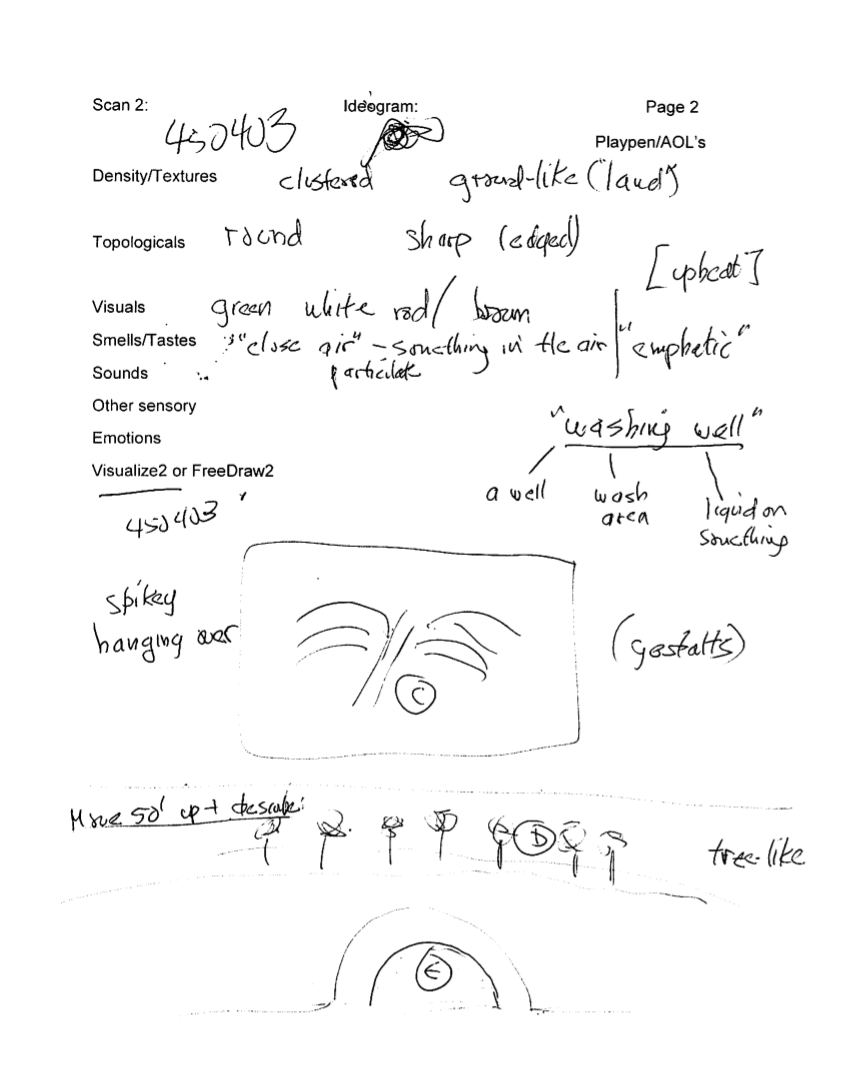 Scan 2: Ideogram: Page 2
450403
Playpen/AOL's
Density/Textures clustered ground-like ("land")
Topologicals round sharp (edged)
[upbeat]
Visuals green white red/ brown
Smells/Tastes "close air" - something in the air "emphatic"
Sounds particulate
Other sensory
Emotions
"washing well"
Visualize2 or FreeDraw2
a well wash area liquid on something
450403
spikey
hanging over
(gestalts)
C
Move 50' up + describe:
D
tree-like
E